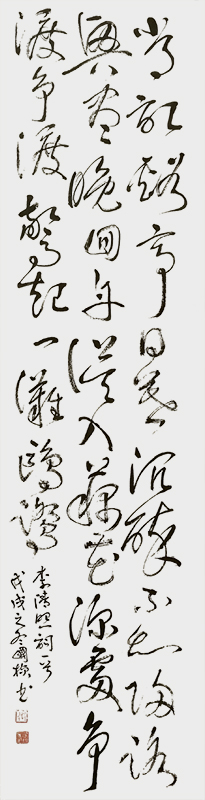 常記谿亭日暮沉醉不知歸路
興盡晚回舟誤入藕花深處爭
渡爭渡驚起一灘鷗鷺
李清照詞一首
戊戌之冬國書